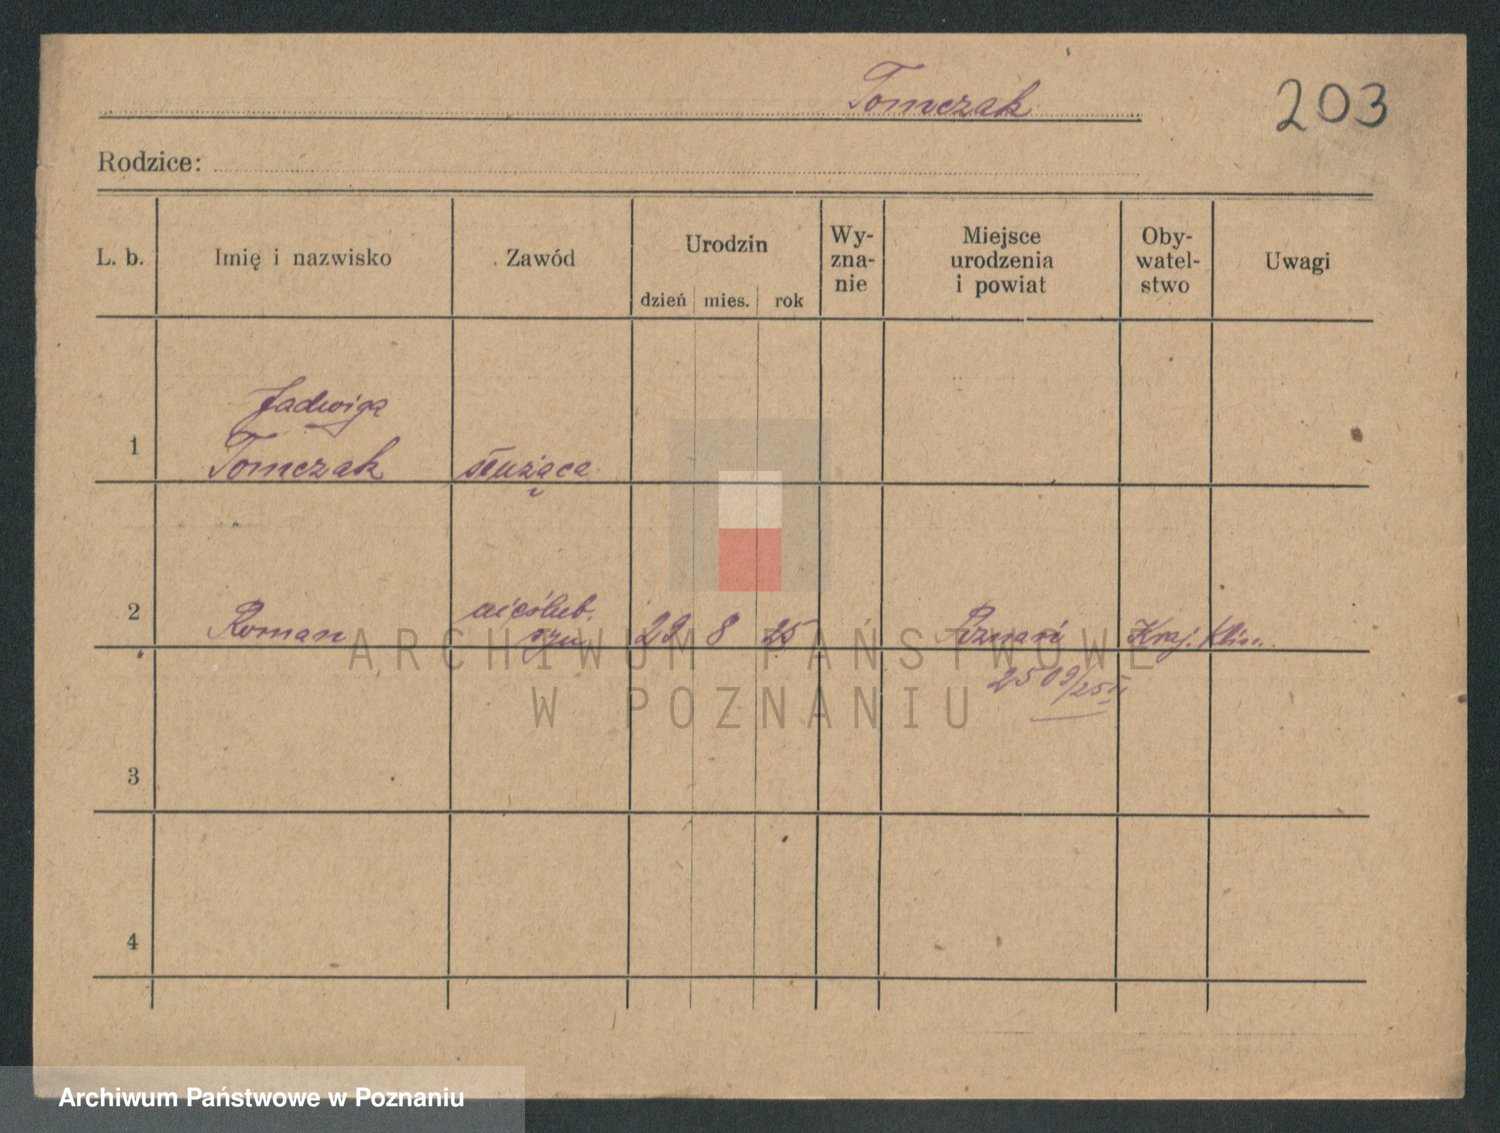 Tomczak
203
Rodzice:
L. b.
Imię i nazwisko
Zawód
Urodzin
dzień mies. rok
Wy-
zna-
nie
Miejsce
urodzenia
i powiat
Oby-
watel-
stwo
Uwagi
1
Jadwiga
Tomczak
służąca
2
Roman
nieślub.
syn
29 8 25
Poznań
Kraj. Klin.
2509/25 II
3
4
ARCHIWUM PAŃSTWOWE
W POZNANIU
Archiwum Państwowe w Poznaniu